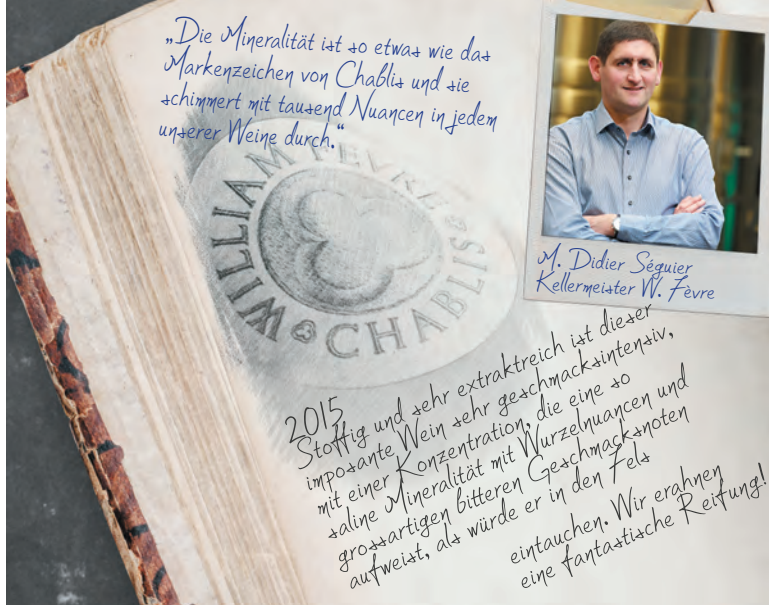 „Die Mineralität ist so etwas wie das
Markenzeichen von Chablis und sie
schimmert mit tausend Nuancen in jedem
unserer Weine durch.“
WILLIAM FEVRE
CHABLIS
M. Didier Séguier
Kellermeister W. Fèvre
2015
Stoffig und sehr extraktreich ist dieser
imposante Wein sehr geschmacksintensiv,
mit einer Konzentration, die eine so
saline Mineralität mit Wurzelnuancen und
grossartigen bitteren Geschmacksnoten
aufweist, als würde er in den Fels
eintauchen. Wir erahnen
eine fantastische Reifung!